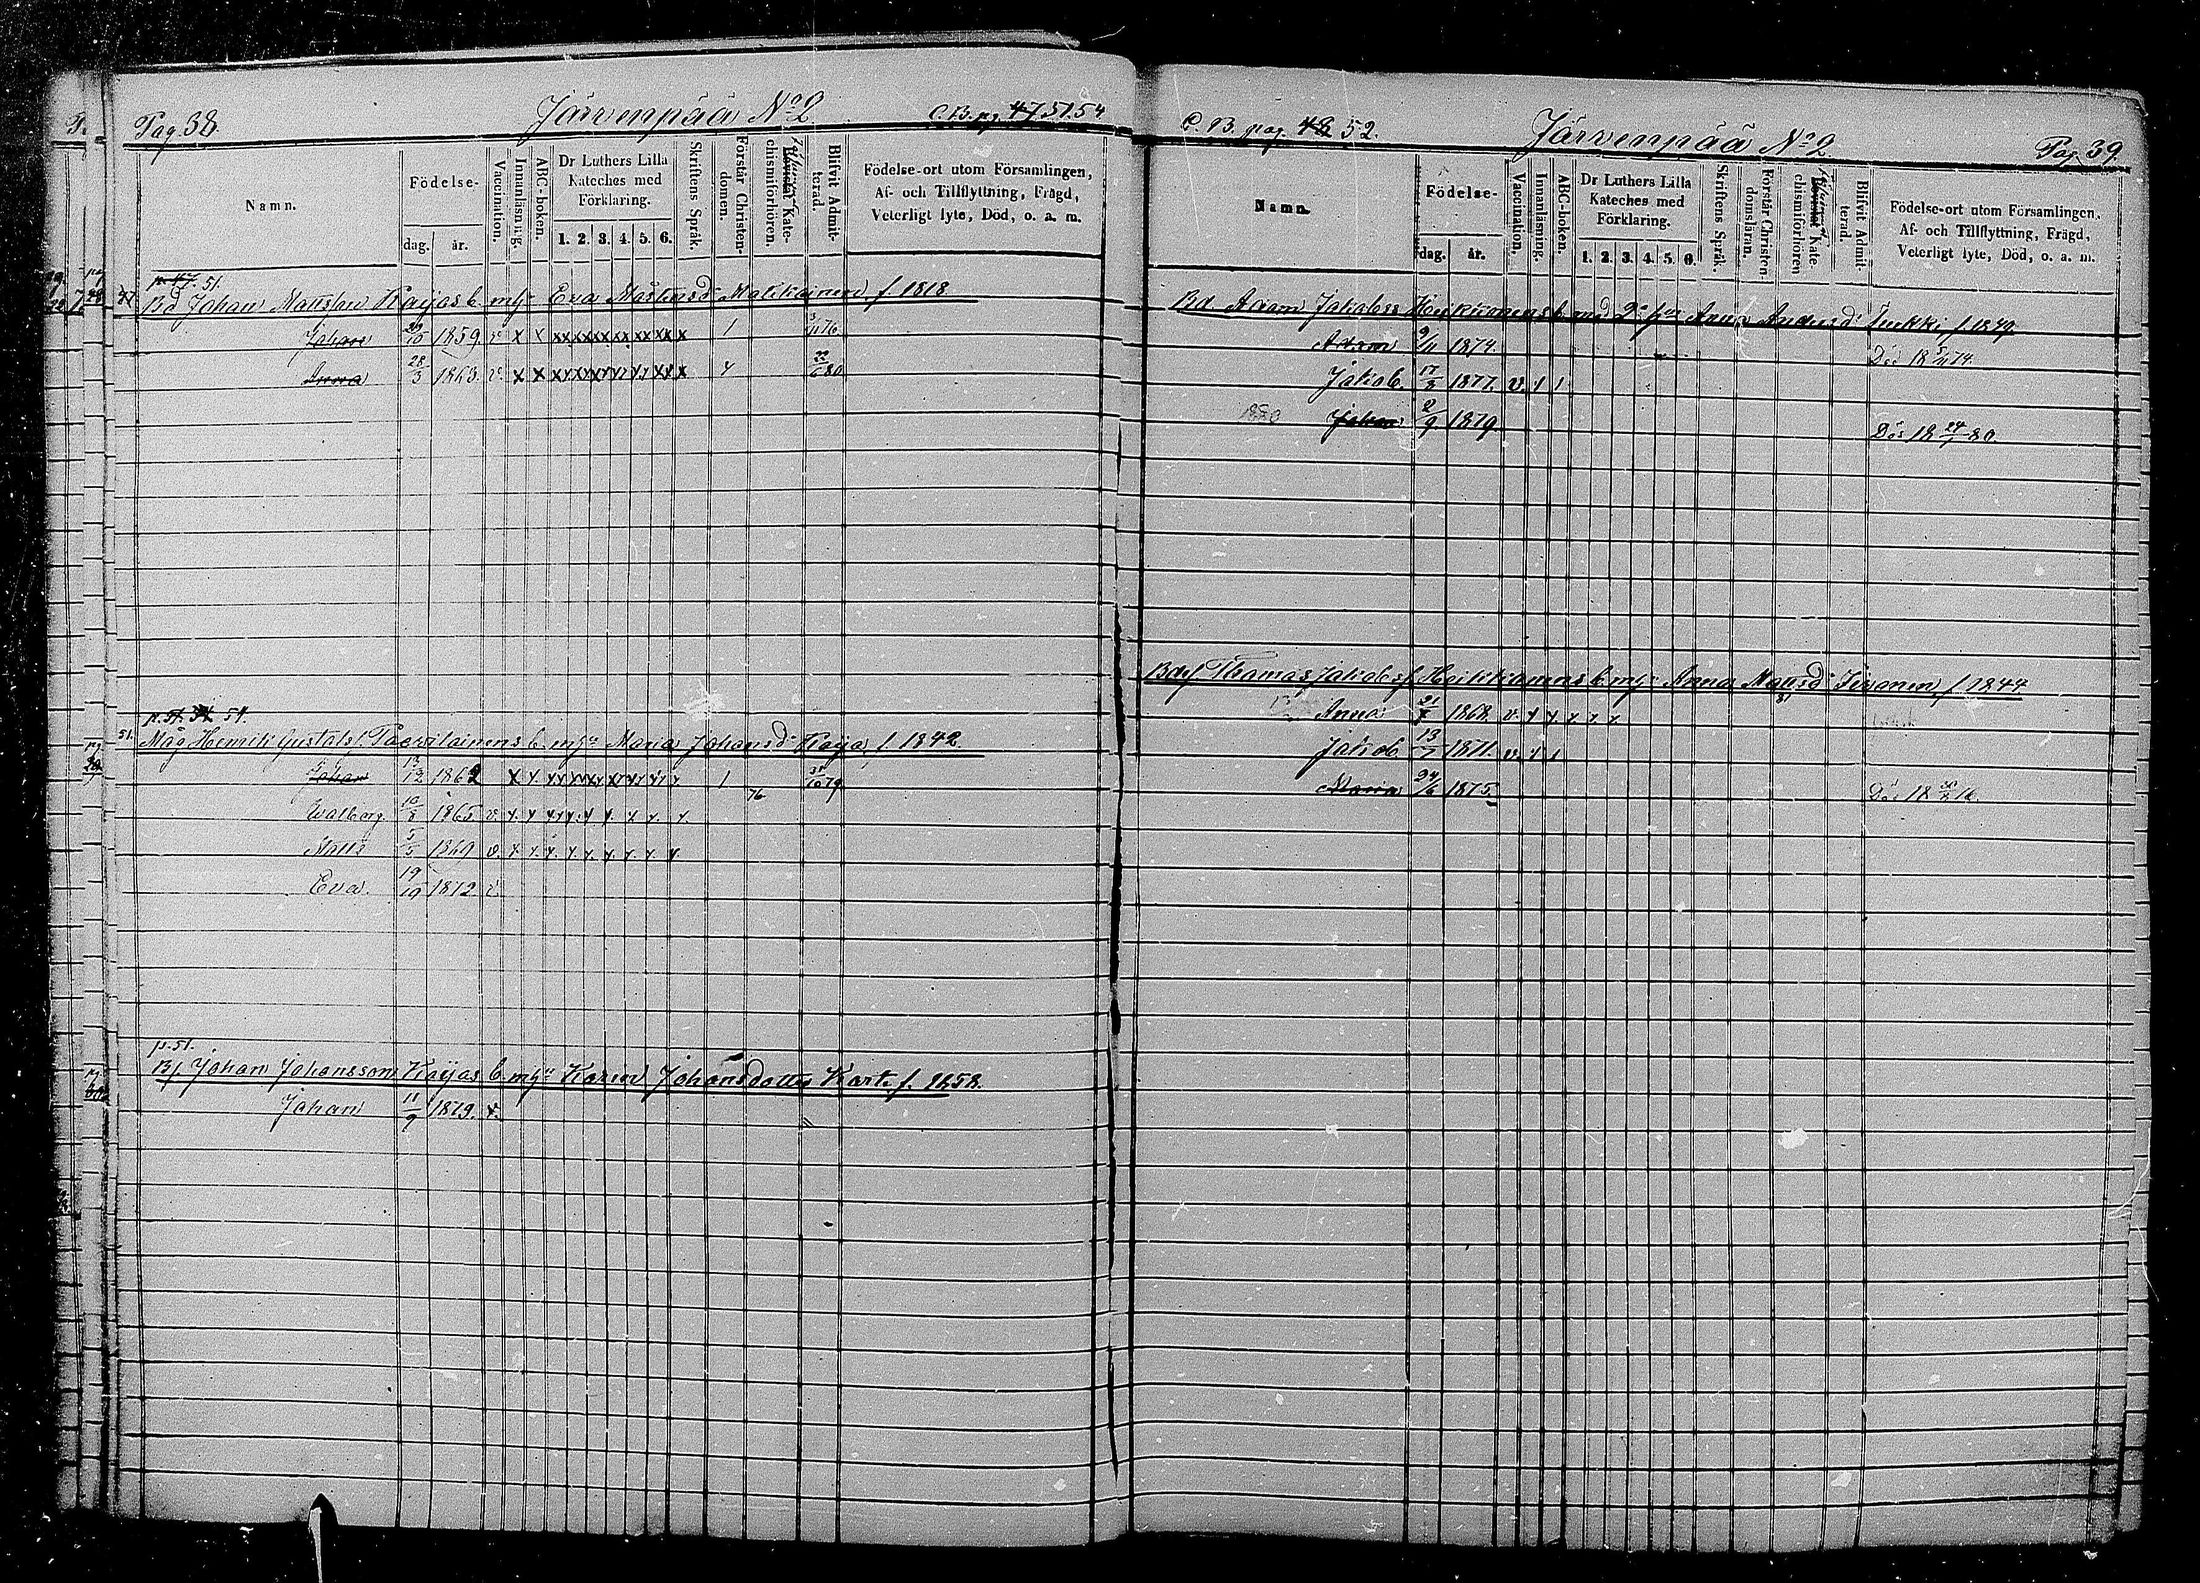 Pag. 38. Järvenpää No 2 C.B. pg. 47 51. 54
Namn. Födelse- dag. år. Vaccination. Innanläsning. ABC-boken. Dr Luthers Lilla Kateches med Förklaring. 1. 2. 3. 4. 5. 6. Skriftens Språk. Förstår Christendomen. Kate-chismiförhören. Blifvit Admitterad. Födelse-ort utom Församlingen, Af- och Tillflyttning, Frägd, Veterligt lyte, Död, o. a. m.
p. 47. 51.
Bd Johan Mattsson Kaijas b. m. hu Eva Mårtensd Matikainen f. 1818
Johan 29/10 1859. v x x xx xx xx xx xx xx x 1 3/11 76
Anna 28/3 1863. v. x x xx xx xx xx xx xx x 4 22/6 80
p. 51. 54 51.
Måg Henrik Gustafsf Paavilainens b. m. hu Maria Johansd Kaija f. 1842
Johan 13/12 1862 x x. 1 31/10 79
76
Walborg 10/2 1865 v x. x
Matts 5/5 1869 v. x x
Eva 19/10 1872 v.
p. 51.
Bs Johan Johansson Kaijas b. m. hu Karin Johansdotter Karts f. 1858
Johan 11/9 1879. v.
C. B. pag. 48 52. Järvenpää No 2 Pag. 39.
Namn. Födelse- dag. år. Vaccination. Innanläsning. ABC-boken. Dr Luthers Lilla Kateches med Förklaring. 1. 2. 3. 4. 5. 6. Skriftens Språk. Förstår Christendomsläran. Kate-chismiförhören Blifvit Admitterad. Födelse-ort utom Församlingen, Af- och Tillflyttning, Frägd, Veterligt lyte, Död, o. a. m.
Bd Adam Jakobss Heikkinens b. med 2a hu Anna Andersd f. 1849
Adam 9/11 1874. Död 18 74.
Jakob. 17/3 1877. v. x 1
1880 Johan 2/9 1879 Död 18 24/7 80
Thomas Jakobsf Heikkinens b. m. hu Anna Mattsd Iivonen f. 1844
Anna 21/7 1868. v. x x x x x
Jakob 13 1871. v. x 1
Maria 24/6 1875. Död 18 76.